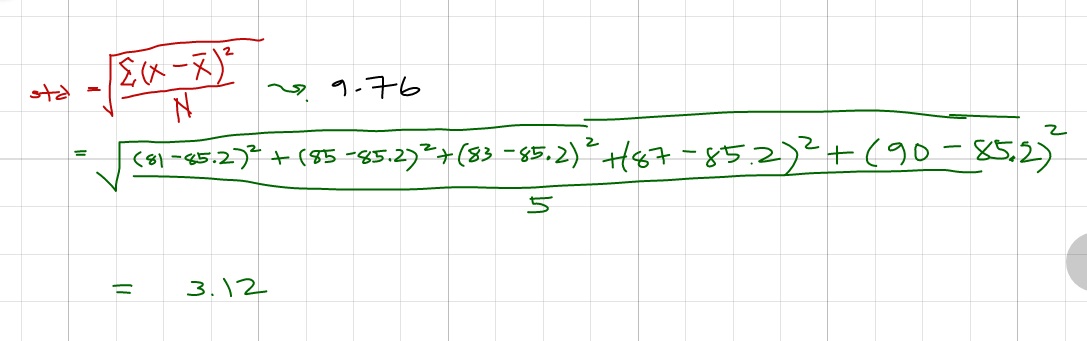 std = √(Σ(x - x̄)² / N) ⤳ 9.76
= √(((81 - 85.2)² + (85 - 85.2)² + (83 - 85.2)² + (87 - 85.2)² + (90 - 85.2)²) / 5)
= 3.12